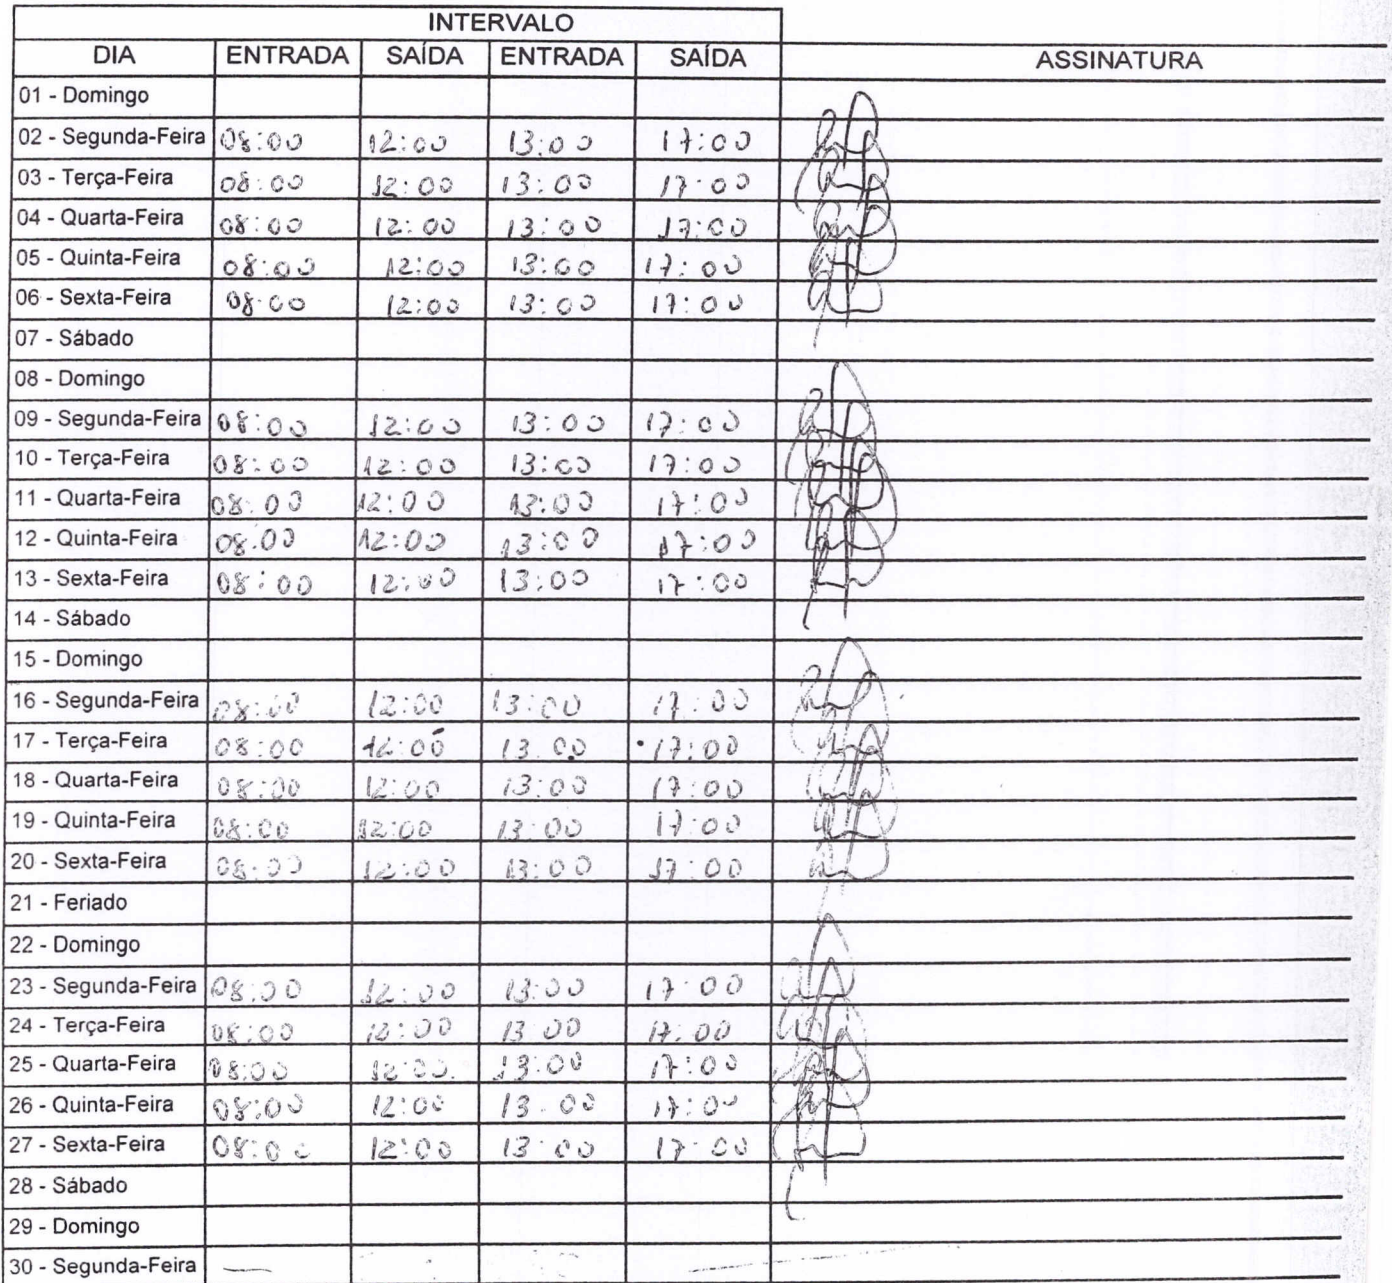 INTERVALO
DIA ENTRADA SAÍDA ENTRADA SAÍDA ASSINATURA
01 - Domingo
02 - Segunda-Feira 08:00 12:00 13:00 17:00
03 - Terça-Feira 08:00 12:00 13:00 17:00
04 - Quarta-Feira 08:00 12:00 13:00 17:00
05 - Quinta-Feira 08:00 12:00 13:00 17:00
06 - Sexta-Feira 08:00 12:00 13:00 17:00
07 - Sábado
08 - Domingo
09 - Segunda-Feira 08:00 12:00 13:00 17:00
10 - Terça-Feira 08:00 12:00 13:00 17:00
11 - Quarta-Feira 08:00 12:00 13:00 17:00
12 - Quinta-Feira 08:00 12:00 13:00 17:00
13 - Sexta-Feira 08:00 12:00 13:00 17:00
14 - Sábado
15 - Domingo
16 - Segunda-Feira 08:00 12:00 13:00 17:00
17 - Terça-Feira 08:00 12:00 13:00 17:00
18 - Quarta-Feira 08:00 12:00 13:00 17:00
19 - Quinta-Feira 08:00 12:00 13:00 17:00
20 - Sexta-Feira 08:00 12:00 13:00 17:00
21 - Feriado
22 - Domingo
23 - Segunda-Feira 08:00 12:00 13:00 17:00
24 - Terça-Feira 08:00 12:00 13:00 17:00
25 - Quarta-Feira 08:00 12:00 13:00 17:00
26 - Quinta-Feira 08:00 12:00 13:00 17:00
27 - Sexta-Feira 08:00 12:00 13:00 17:00
28 - Sábado
29 - Domingo
30 - Segunda-Feira